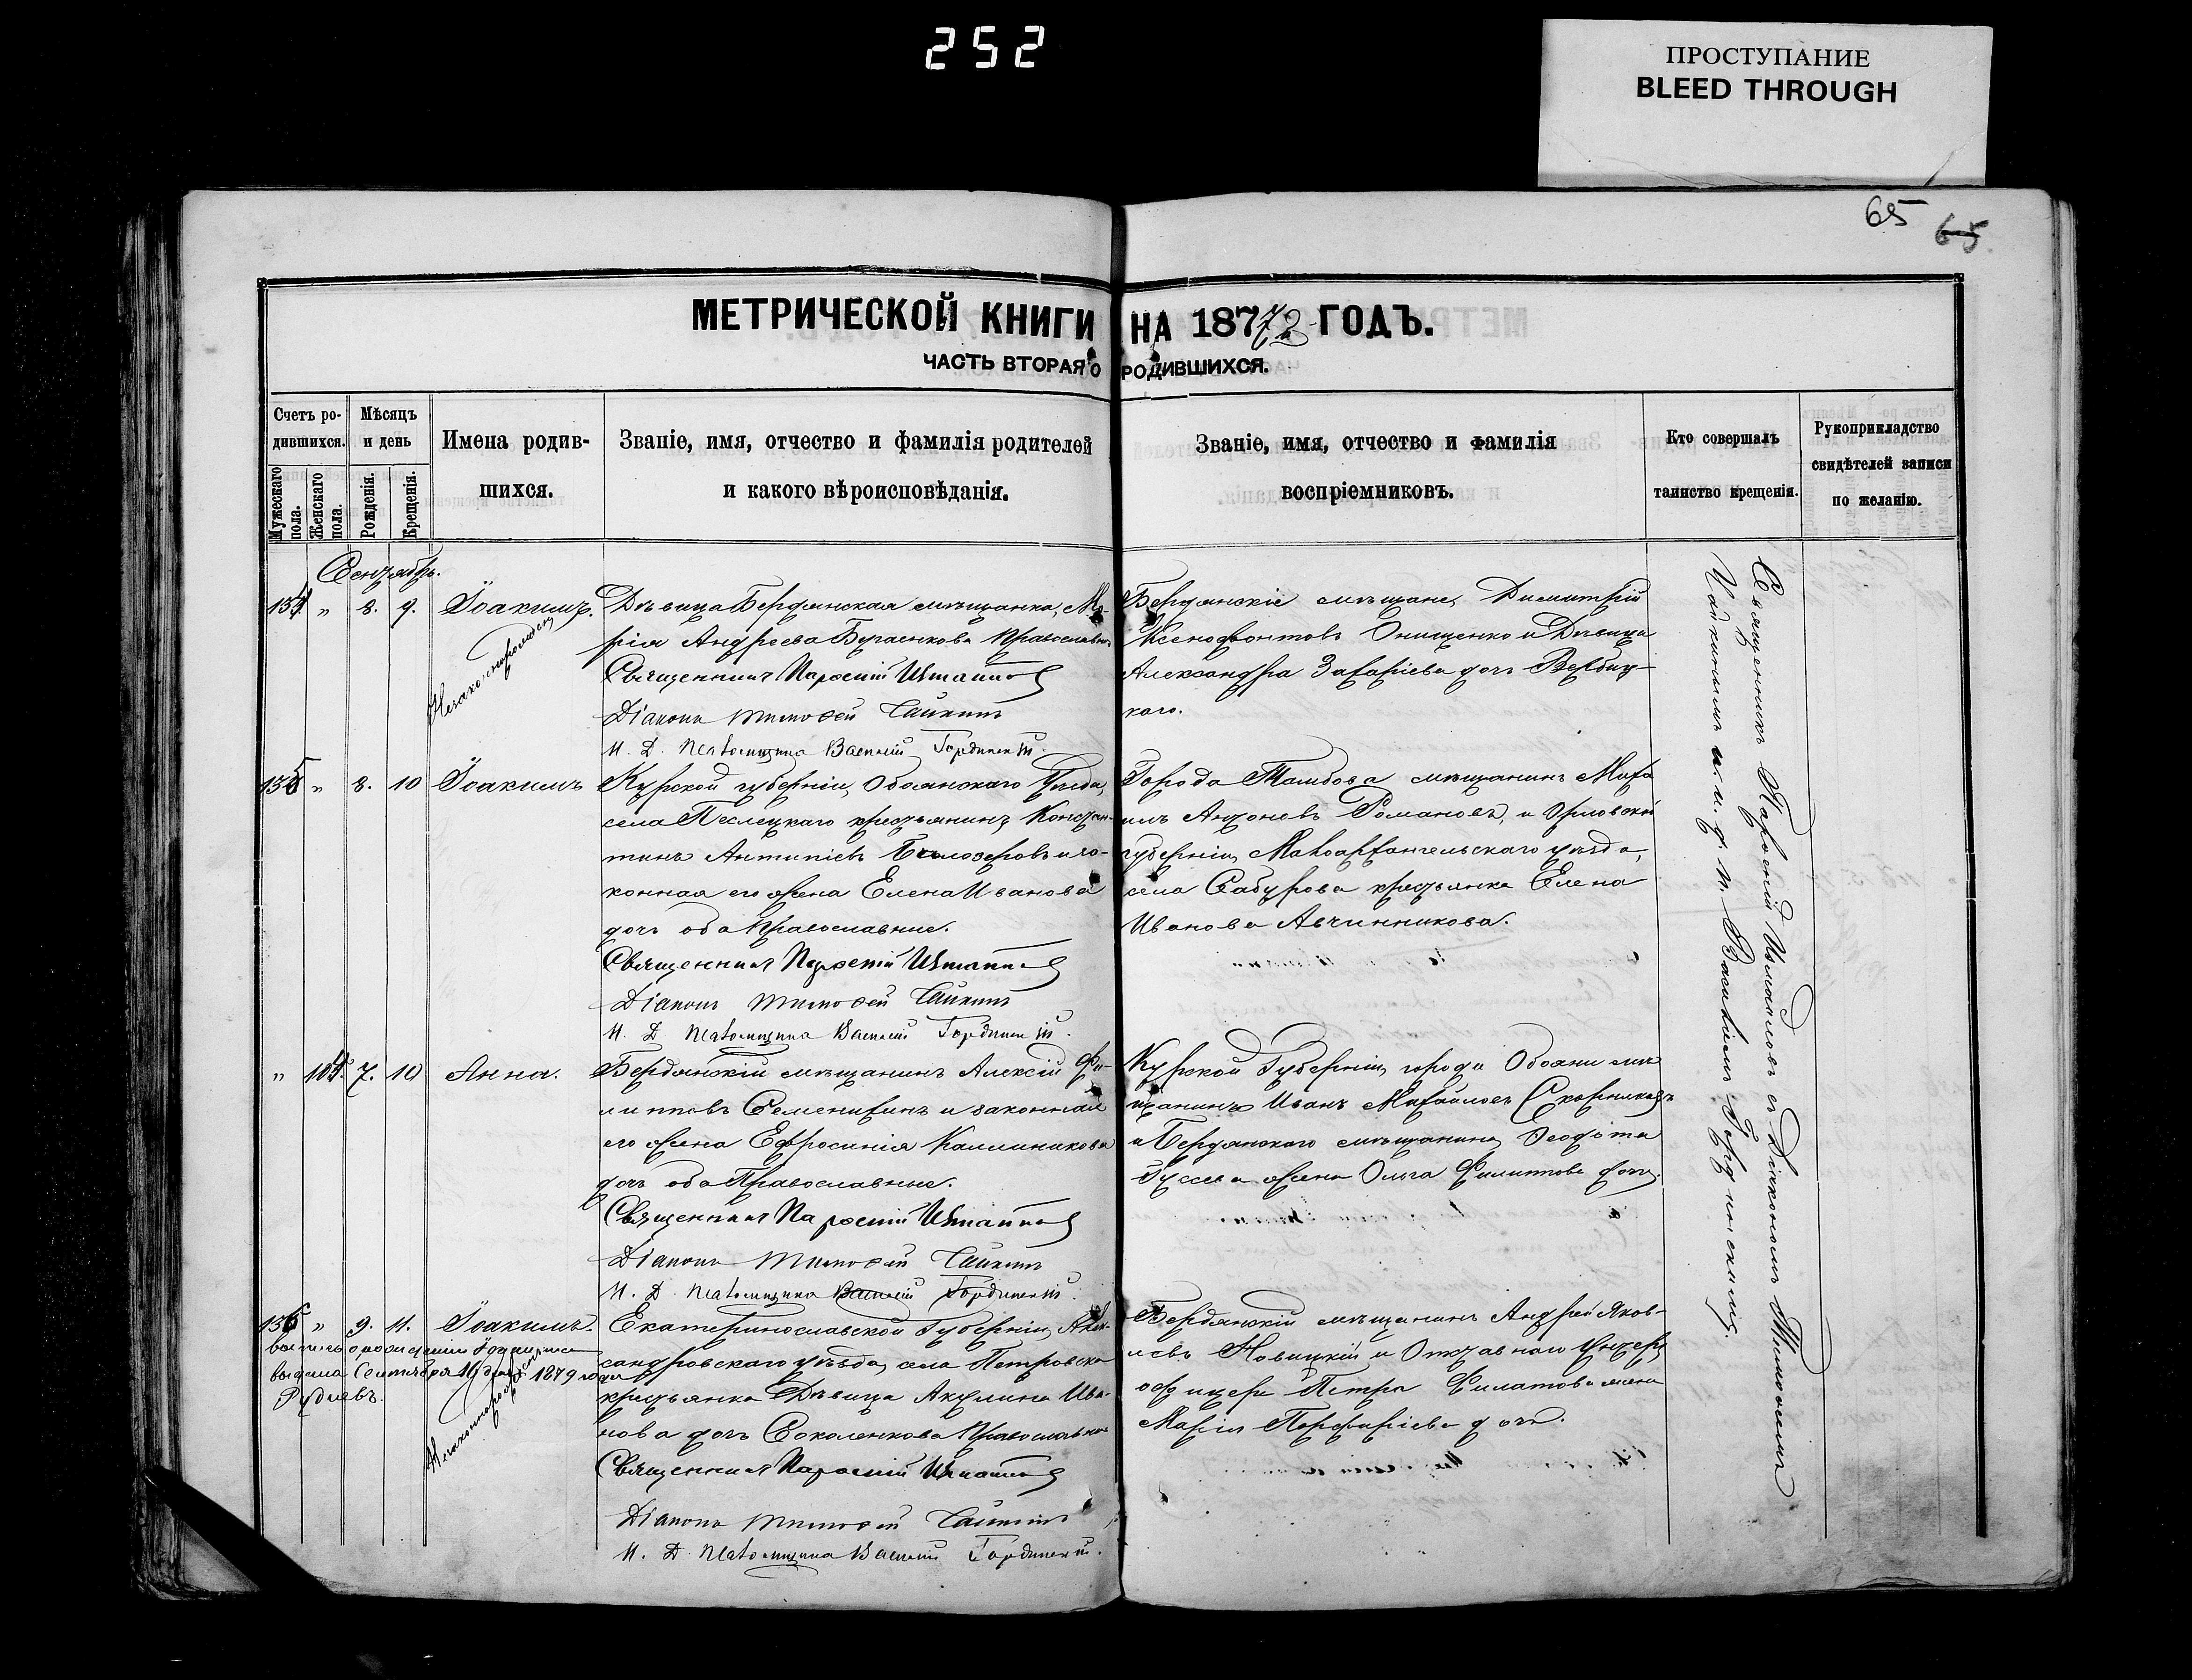 252
ПРОСТУПАНИЕ
BLEED THROUGH
65 65
МЕТРИЧЕСКОЙ КНИГИ НА 1872 ГОДЪ.
ЧАСТЬ ВТОРАЯ О РОДИВШИХСЯ.
Счетъ ро-
дившихся.
Мужескаго пола.
Женскаго пола.
Мѣсяцъ
и день
Рожденія.
Крещенія.
Имена родив-
шихся.
Званіе, имя, отчество и фамилія родителей
и какого вѣроисповѣданія.
Званіе, имя, отчество и фамилія
воспріемниковъ.
Кто совершалъ
таинство крещенія.
Рукоприкладство
свидѣтелей записи
по желанію.
Сентябрь.
154 " 8. 9. Іоакимъ.
Незаконнорожденъ
Дѣвица Бердянская мѣщанка, Ма-
рія Андреева Бугаенкова Православная
Священникъ Парѳеній
Діаконъ Тимоѳей Чайкинъ
И. Д. Псаломщика Василій Гординскій.
Бердянскіе мѣщане, Димитрій
Ксенофонтовъ Онищенко и Дѣвица
Александра Захаріева дочь Вербиц-
каго.
155 " 8. 10 Іоакимъ
Курской губерніи, Обоянскаго Уѣзда,
села Песлецкаго крестьянинъ Констан-
тинъ Антипіевъ Бѣлозеровъ и за-
конная его жена Елена Иванова
дочь оба Православные.
Священникъ Парѳеній
Діаконъ Тимоѳей Чайкинъ
И. Д. Псаломщика Василій Гординскій.
Города Тамбова мѣщанинъ Миха-
илъ Антоновъ Романовъ, и Орловской
губерніи, Малоархангельскаго уѣзда,
села Сабурова крестьянка Елена
Иванова Авчинникова.
" 104. 7. 10 Анна.
Бердянскій мѣщанинъ Алексій Фи-
липповъ Семенихинъ и законная
его жена Ефросинія Каллиникова
дочь оба Православные.
Священникъ Парѳеній
Діаконъ Тимоѳей Чайкинъ
И. Д. Псаломщика Василій Гординскій.
Курской Губерніи, города Обояни мѣ-
щанинъ Иванъ Михайловъ Скорняковъ
и Бердянскаго мѣщанина Ѳеодота
Гусева жена Ольга Филиппова дочь.
156 " 9. 11. Іоакимъ.
выпись о рожденіи Іоакима
выдана Сентября 1879 года
Рудневъ.
Незаконнорожденъ
Екатеринославской Губерніи, Алек-
сандровскаго уѣзда, села Петровска
крестьянка Дѣвица Акулина Ива-
нова дочь Соколенкова Православная
Священникъ Парѳеній
Діаконъ Тимоѳей Чайкинъ
И. Д. Псаломщика Василій Гординскій.
Бердянскій мѣщанинъ Андрей Яков-
левъ Новицкій и Отставнаго Унтеръ
офицера Петра Филатова жена
Марія Порфиріева дочь.
Священникъ Парѳеній съ Діакономъ Тимоѳеемъ
Чайкинымъ и и. д. п. Василіемъ Гординскимъ.